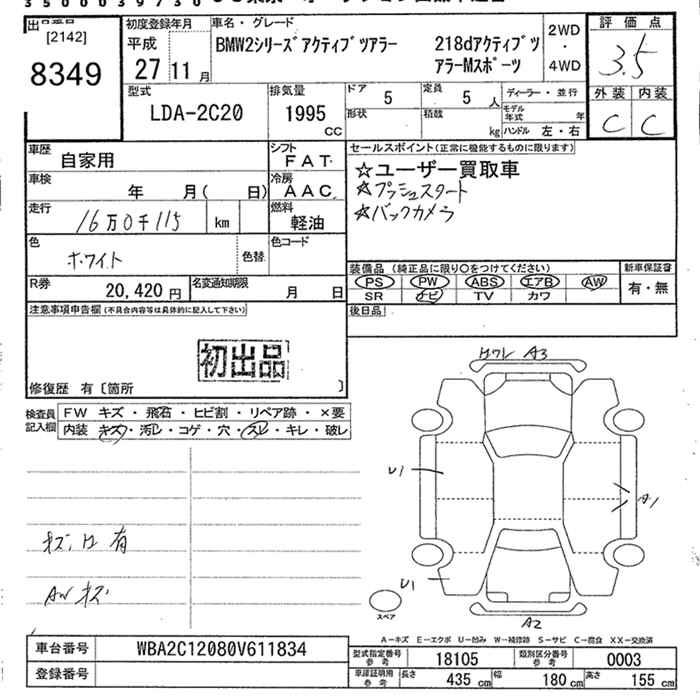 3500039730
出品番号 [2142]
8349
初度登録年月
平成
27 11 月
車名・グレード
BMW2シリーズアクティブツアラー 218dアクティブツアラーMスポーツ
2WD・4WD
評価点
3.5
型式
LDA-2C20
排気量
1995
CC
ドア
5
定員
5 人
ディーラー・並行
形状
積載
kg
モデル年式 年
ハンドル 左・右
外装 内装
C C
車歴
自家用
シフト
FAT
セールスポイント(正常に機能するものに限ります)
☆ユーザー買取車
☆プッシュスタート
☆バックカメラ
車検
年 月( 日)
冷房
AAC
走行
16万0千115 km
燃料
軽油
色
ホワイト
色替
色コード
装備品(純正品に限り○をつけてください)
新車保証書
PS PW ABS エアB AW
SR ナビ TV カワ
有・無
R券
20,420 円
名変通知期限
月 日
後日品
注意事項申告欄(不具合内容等は具体的に記入して下さい)
初出品
修復歴 有〔箇所 〕
検査員記入欄
FW キズ・飛石・ヒビ割・リペア跡・×要
内装 キズ・汚レ・コゲ・穴・スレ・キレ・破レ
A3
U1
A1
キズ、凹有
AWキズ
U1
スペア
A2
A-キズ E-エクボ U-凹み W-補修跡 S-サビ C-腐食 XX-交換済
車台番号
WBA2C12080V611834
登録番号
型式指定番号 参考
18105
類別区分番号 参考
0003
車庫証明用 参考
長さ 435 cm 幅 180 cm 高さ 155 cm